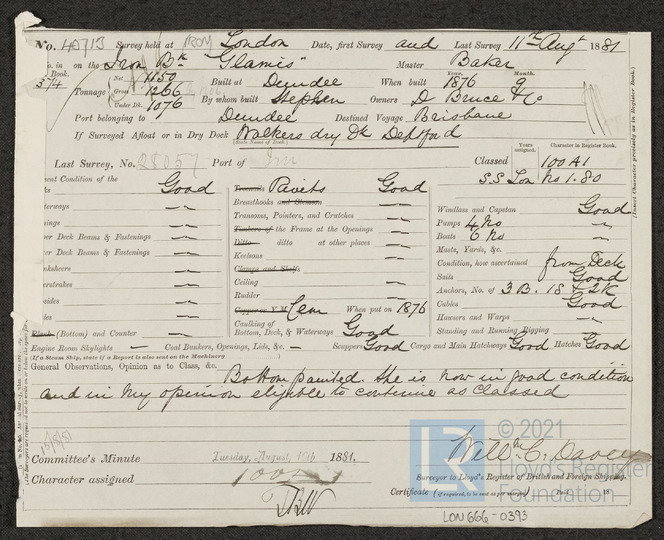 No. 40713 Survey held at London Date, first Survey and Last Survey 11th Augt 1881
IRON
on the Iron Bk "Glamis" Master Baker
Book.
3/4
Tonnage Net 1150 Gross 1266 Under Dk. 1076 Built at Dundee When built Year. 1876 Month. 9
By whom built Stephen Owners D. Bruce & Co
Port belonging to Dundee Destined Voyage Brisbane
If Surveyed Afloat or in Dry Dock Walkers dry Dk Deptford
(State Name of Dock.)
Last Survey, No. 28057 Port of Classed
Years assigned. Character in Register Book.
100A1
S.S. Lon No 1. 80
(Insert Character precisely as in Register Book.)
ent Condition of the Good
terways
er Deck Beams & Fastenings
er Deck Beams & Fastenings
Plank (Bottom) and Counter
Treenails Rivets Good
Breasthooks and Stemson
Transoms, Pointers, and Crutches
Timbers of the Frame at the Openings
Ditto ditto at other places
Keelsons
Clamps and Shelfs
Ceiling
Rudder
Copper or Y.M. Cem When put on 1876
Caulking of Bottom, Deck, & Waterways Good
Windlass and Capstan Good
Pumps 4 No
Boats 6 No
Masts, Yards, &c.
Condition, how ascertained from Deck
Sails Good
Anchors, No. of 3 B. 1S & 2K
Cables Good
Hawsers and Warps
Standing and Running Rigging
Engine Room Skylights — Coal Bunkers, Openings, Lids, &c. — Scuppers Good Cargo and Main Hatchways Good Hatches Good
(If a Steam Ship, state if a Report is also sent on the Machinery)
General Observations, Opinion as to Class, &c.
Bottom painted. She is now in good condition
and in my opinion eligible to continue as Classed
15/8/81
Committee's Minute Tuesday, August, 16th 1881.
Character assigned 100A1
Willm C. Davey
Surveyor to Lloyd's Register of British and Foreign Shipping.
Certificate (if required, to be sent as per margin) 18
LR
© 2021
Lloyd's Register
Foundation
LON666-0393